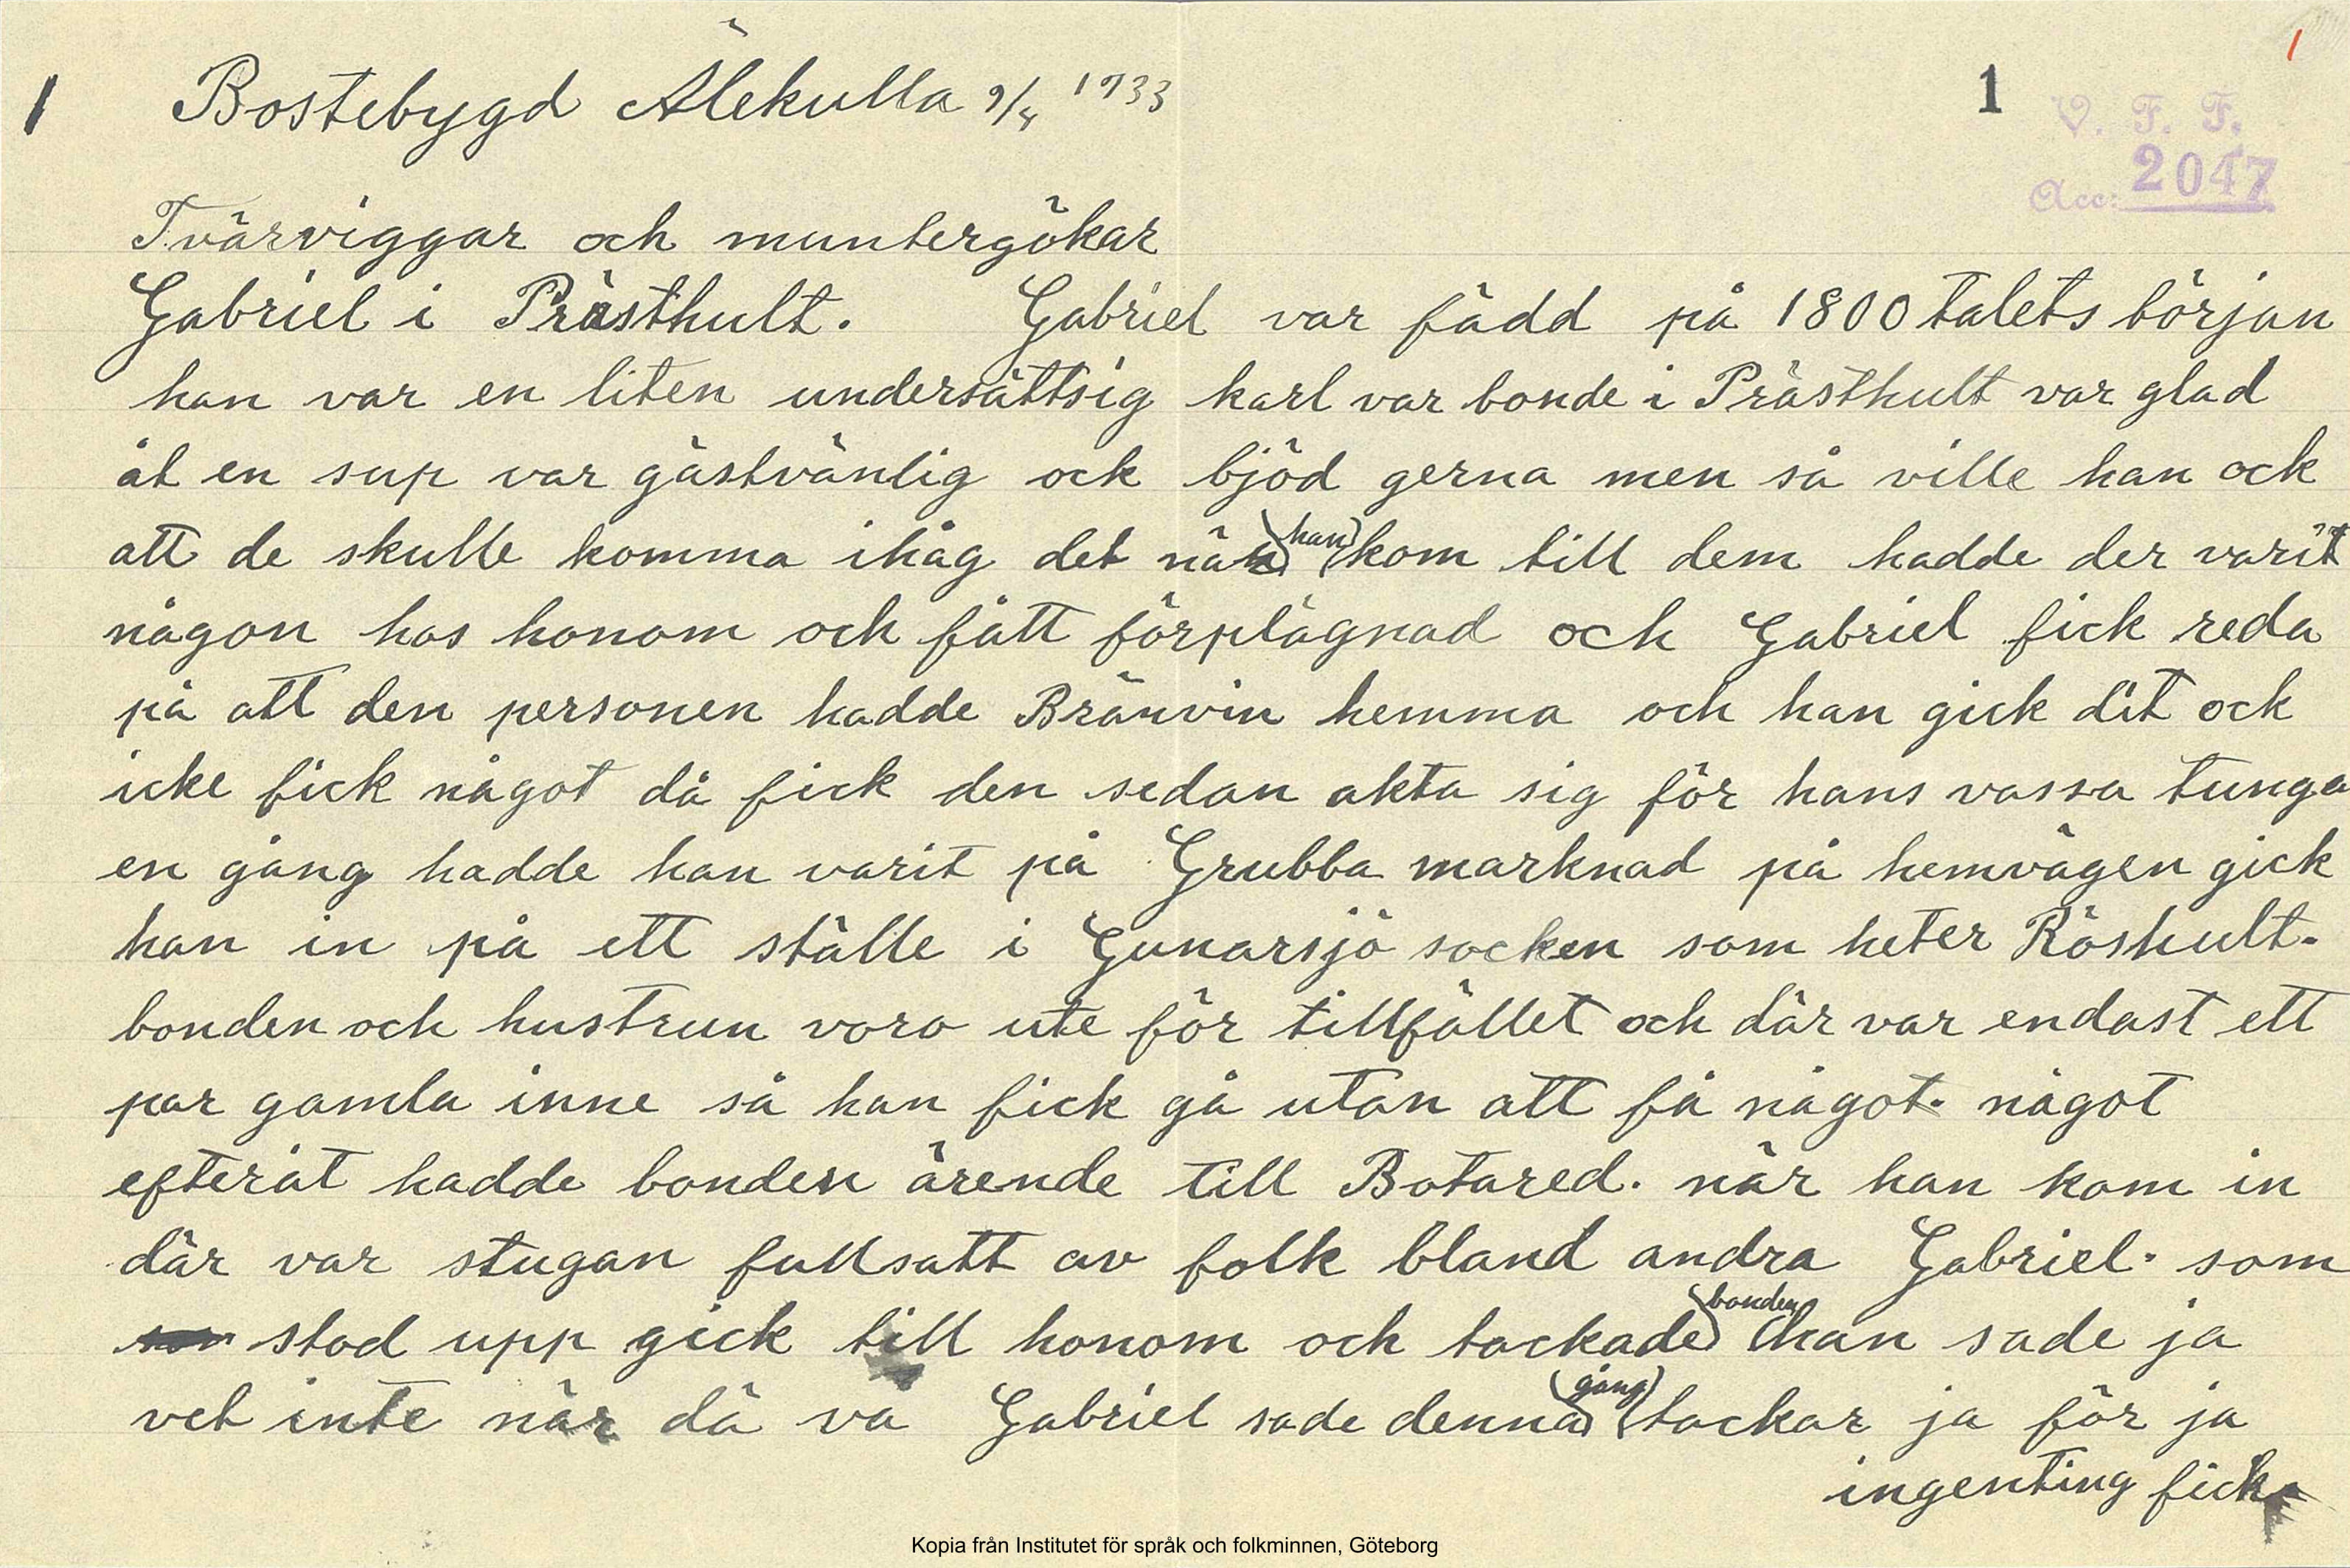 1
1 Bostebygd Älekulla 9/4 1933 1
V. F. F.
Acc: 2047
Tvärviggar och muntergökar
Gabriel i Prästhult. Gabriel var född på 1800 talets början
han var en liten undersättsig karl var bonde i Prästhult var glad
åt en sup var gästvänlig ock bjöd gerna men så ville han ock
att de skulle komma ihåg det när han kom till dem hadde der varit
någon hos honom och fått förplägnad och Gabriel fick reda
på att den personen hadde Bränvin hemma och han gick dit ock
icke fick något då fick den sedan akta sig för hans vassa tunga
en gång hadde han varit på Grubba marknad på hemvägen gick
han in på ett ställe i Gunarsjö socken som heter Röshult.
bonden och hustrun voro ute för tillfället och där var endast ett
par gamla inne så han fick gå utan att få något. något
efteråt hadde bonden ärende till Botared. när han kom in
där var stugan fullsatt av folk bland andra Gabriel. som
stod upp gick till honom och tackade bonden han sade ja
vet inte när dä va Gabriel sade denna gång tackar ja för ja
ingenting fick
Kopia från Institutet för språk och folkminnen, Göteborg